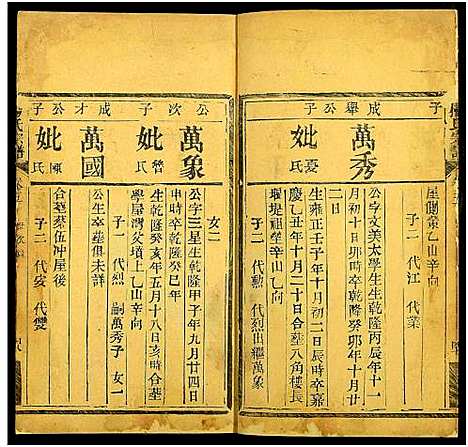 子
屋側策乙山辛向
子二 代江 代業
成舉公子
萬秀
妣夏氏
公字文美太學生生乾隆丙辰年十一
月初十日卯時卒乾隆癸卯年十月十
二日
生雍正壬子年十月初二日辰時卒嘉
慶乙丑年十月二十日合塟八角樓長
堰堤祖塋辛山乙向
子二 代勳 代烈出繼萬象
女二
公次子
萬象
妣曾氏
公字三星生乾隆甲子年九月廿四日
申時卒乾隆癸巳年
生乾隆癸亥年五月十八日亥時合塟
學屋灣父墳上乙山辛向
子一 代烈 嗣萬秀子 女一
成才公子
萬國
妣陳氏
公生卒塟俱未詳
合塟蔡伍冲屋後
子二 代安 代雙